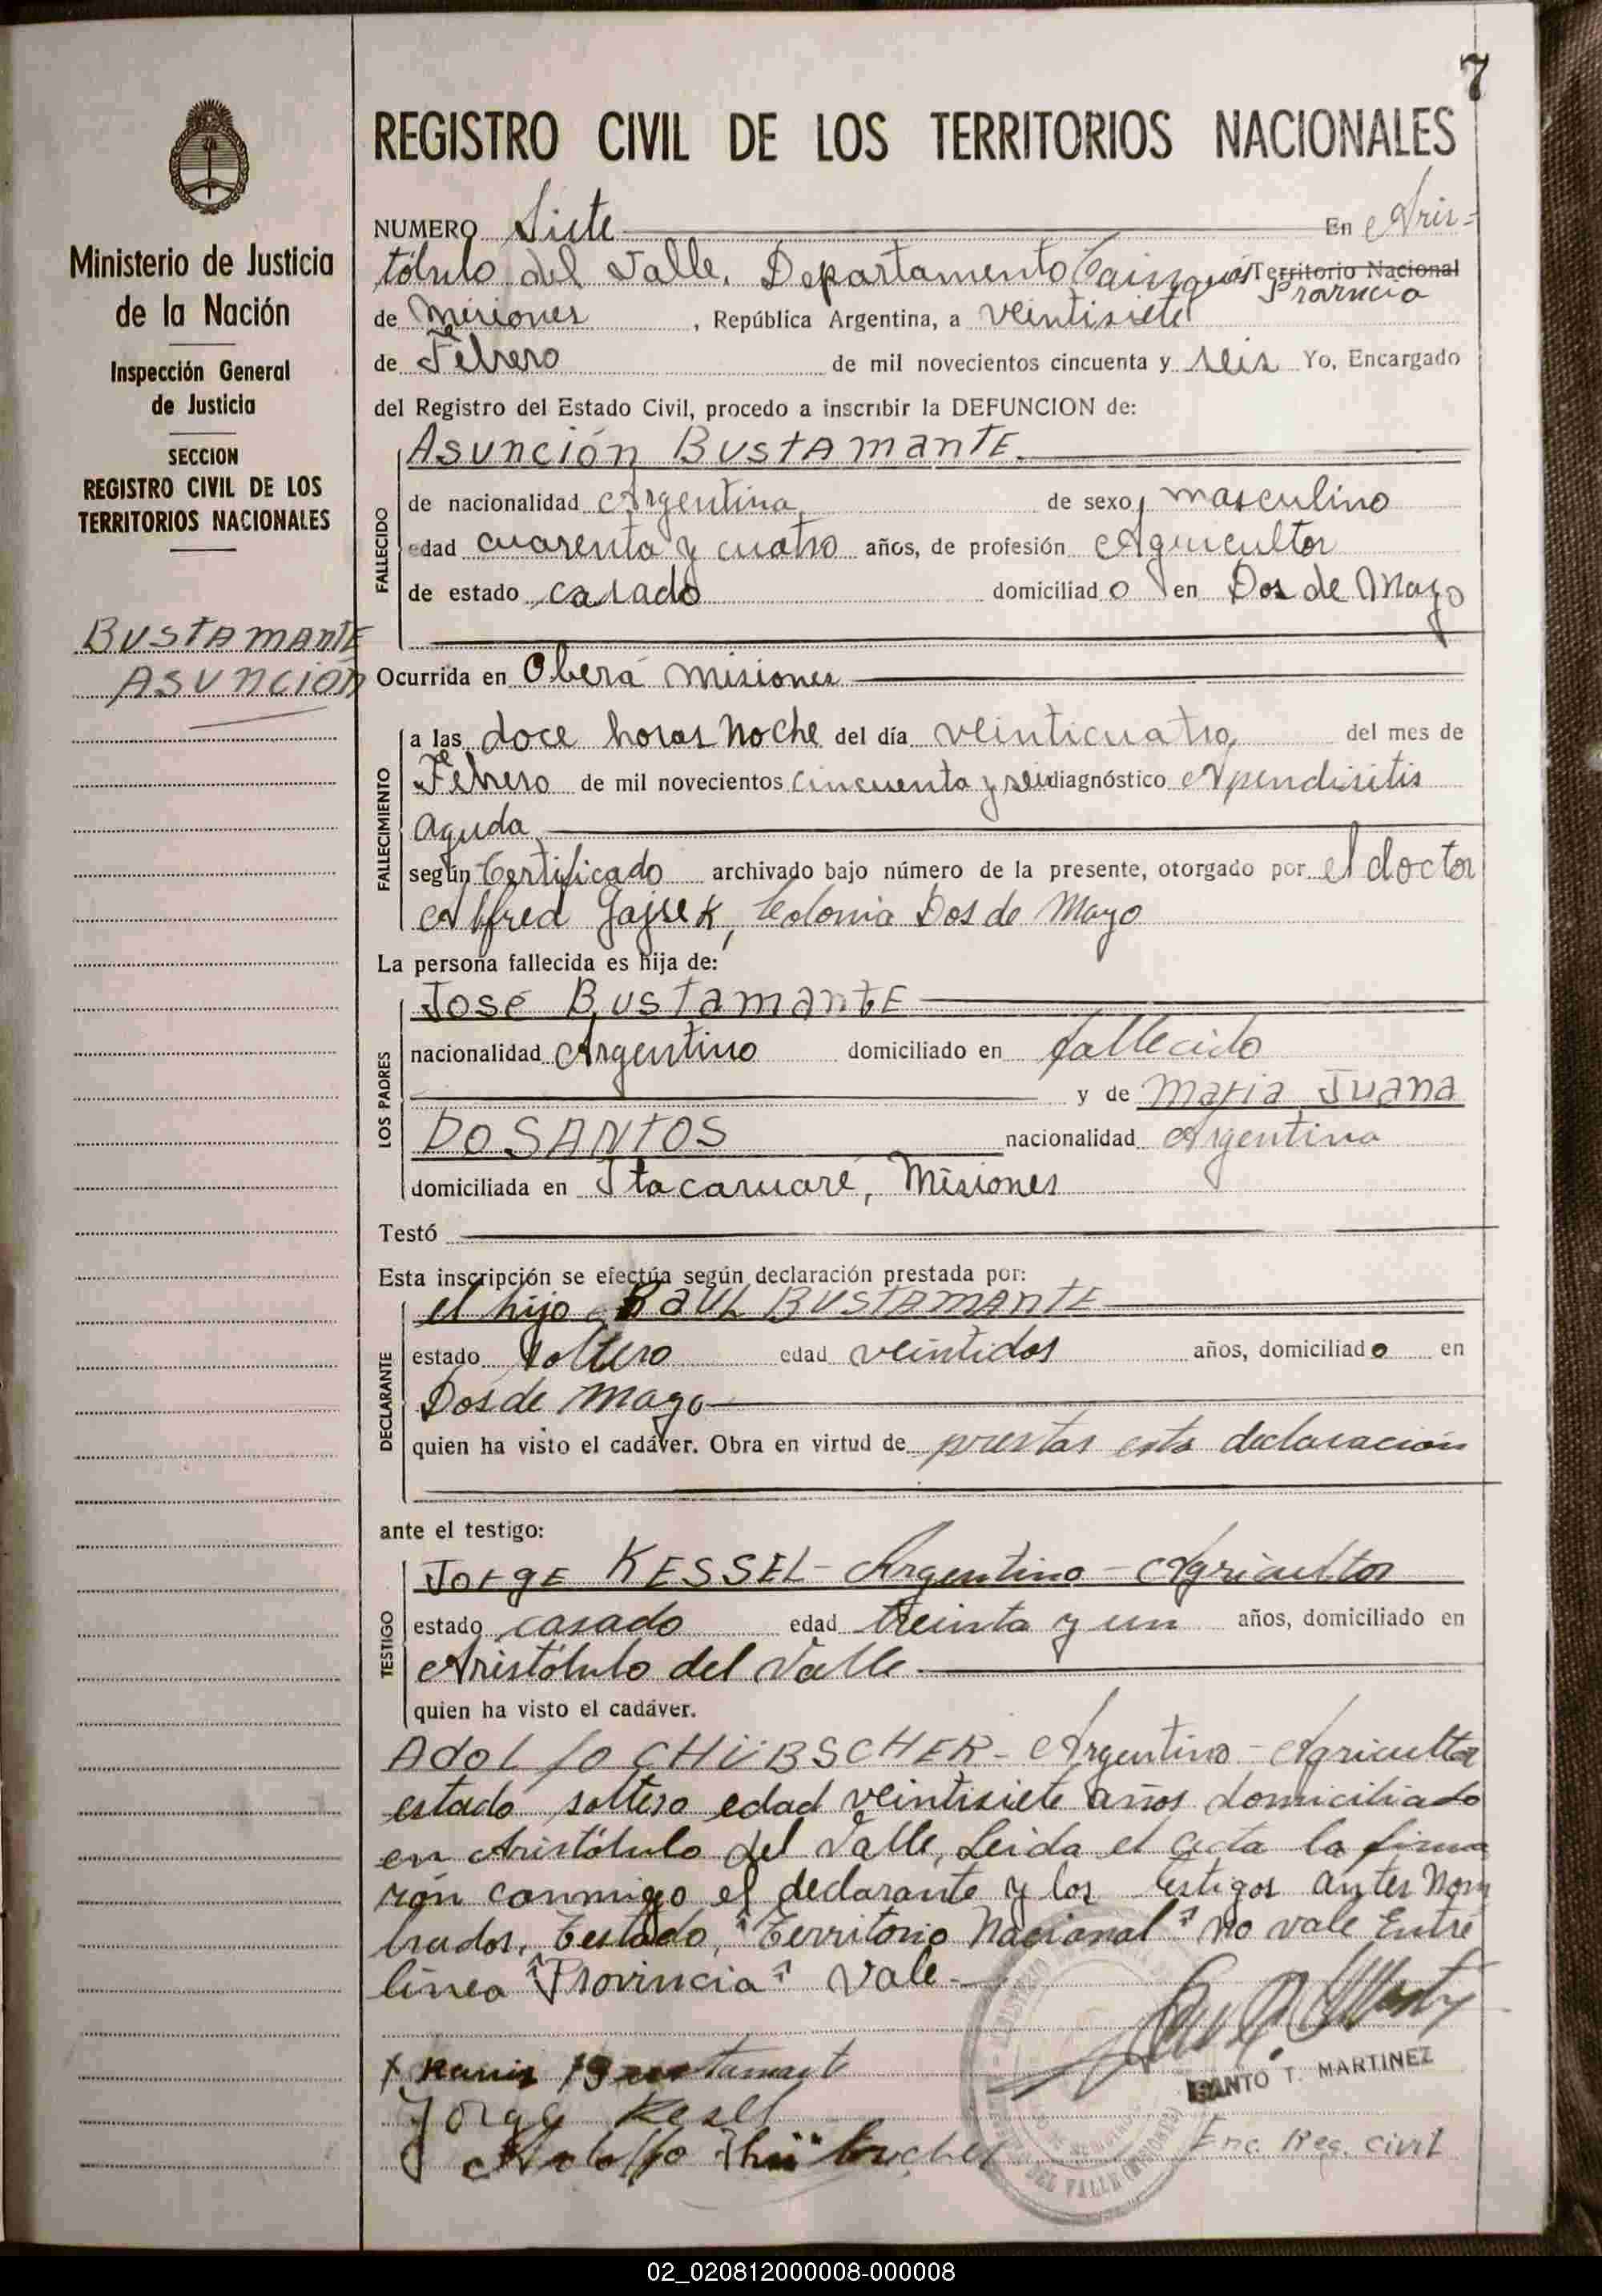 7
REGISTRO CIVIL DE LOS TERRITORIOS NACIONALES
Ministerio de Justicia
de la Nación
Inspección General
de Justicia
SECCION
REGISTRO CIVIL DE LOS
TERRITORIOS NACIONALES
BUSTAMANTE
ASUNCIÓN
NUMERO Siete En Aris=
tóbulo del Valle, Departamento Cainguás Territorio Nacional
Provincia
de Misiones, República Argentina, a veintisiete
de Febrero de mil novecientos cincuenta y seis Yo, Encargado
del Registro del Estado Civil, procedo a inscribir la DEFUNCION de:
Asunción BUSTAMANTE.
FALLECIDO
de nacionalidad Argentina de sexo masculino
edad cuarenta y cuatro años, de profesión Agricultor
de estado casado domiciliado en Dos de Mayo
Ocurrida en Oberá Misiones
FALLECIMIENTO
a las doce horas noche del día veinticuatro del mes de
Febrero de mil novecientos cincuenta y seis diagnóstico Apendisitis
aguda
según Certificado archivado bajo número de la presente, otorgado por el doctor
Alfred Gajsek, Colonia Dos de Mayo
La persona fallecida es hija de:
LOS PADRES
José BUSTAMANTE
nacionalidad Argentino domiciliado en fallecido
y de Maria Juana
DO SANTOS nacionalidad Argentina
domiciliada en Itacaruaré, Misiones
Testó
Esta inscripción se efectúa según declaración prestada por:
DECLARANTE
el hijo RAUL BUSTAMANTE
estado soltero edad veintidos años, domiciliado en
Dos de Mayo
quien ha visto el cadáver. Obra en virtud de prestar esta declaración
ante el testigo:
TESTIGO
Jorge KESSEL - Argentino - Agricultor
estado casado edad treinta y un años, domiciliado en
Aristóbulo del Valle
quien ha visto el cadáver.
Adolfo CHÜBSCHER - Argentino - Agricultor
estado soltero edad veintisiete años domiciliado
en Aristóbulo del Valle, Leida el acta la firma
rón conmigo el declarante y los testigos antes nom
brados. Testado, "Territorio Nacional" no vale Entre
línea "Provincia" vale.-
Bustamante
SANTO T. MARTINEZ
Jorge Kesel
Enc. Reg. Civil
Adolfo
DEL VALLE (MISIONES)
02_020812000008-000008